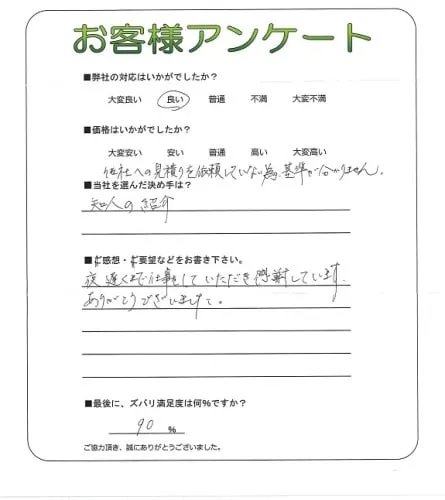 お客様アンケート
■弊社の対応はいかがでしたか?
大変良い 良い 普通 不満 大変不満
■価格はいかがでしたか?
大変安い 安い 普通 高い 大変高い
他社への見積りを依頼していない為、基準が分かりません。
■当社を選んだ決め手は?
知人の紹介
■ご感想・ご要望などをお書き下さい。
夜遅くまで仕事をしていただき感謝しています。
ありがとうございました。
■最後に、ズバリ満足度は何%ですか?
90 %
ご協力頂き、誠にありがとうございました。